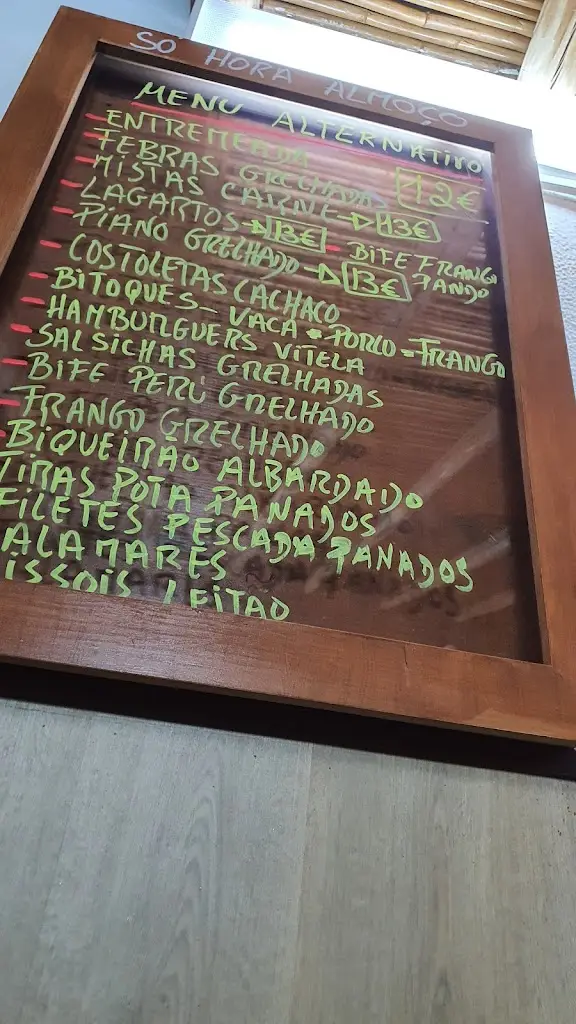 SO HORA ALMOÇO
MENU ALTERNATIVO
ENTREMEADA
FEBRAS GRELHADAS 12€
MISTAS CARNE 13€
LAGARTOS 13€ BIFE FRANGO PANDO
PIANO GRELHADO 13€
COSTOLETAS CACHACO
BITOQUES - VACA = PORCO = FRANGO
HAMBURGUERS VITELA
SALSICHAS GRELHADAS
BIFE PERÚ GRELHADO
FRANGO GRELHADO
BIQUEIRÃO ALBARDAIDO
TIRAS POTA PANADOS
FILETES PESCADA PANADOS
ALAMARES
ISSOIS LEITAO